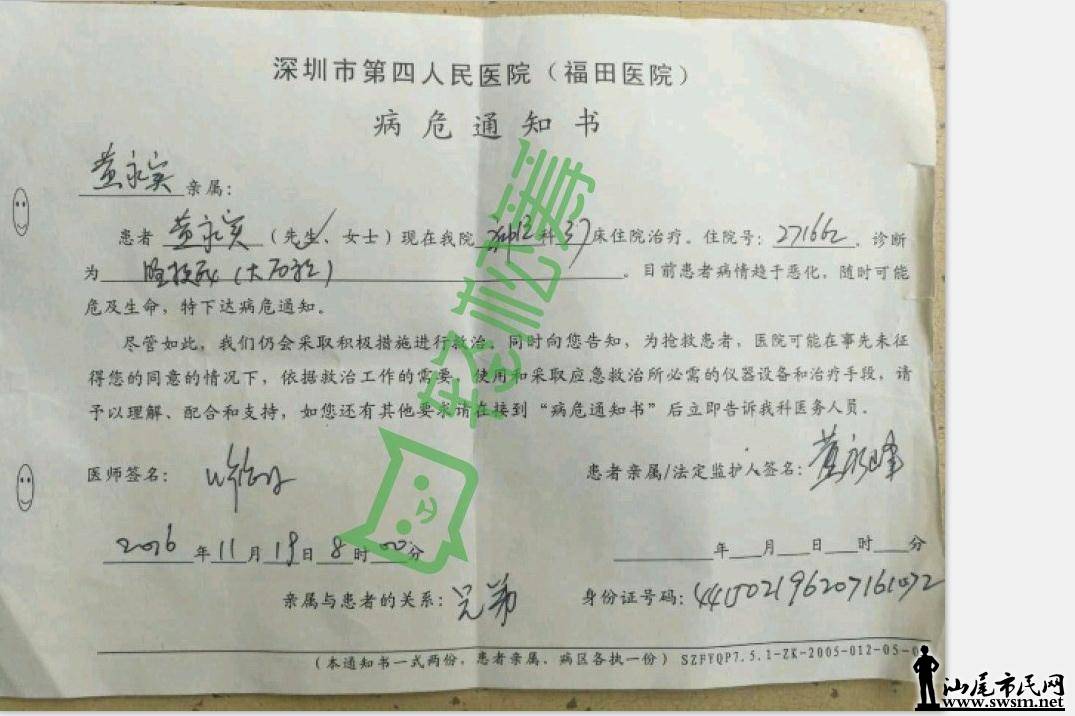 深圳市第四人民医院（福田医院）
病危通知书
黄永实 亲属：
患者 黄永实 （先生、女士）现在我院 神经 科 37 床住院治疗。住院号：271662。诊断
为 脑梗死（大面积）。目前患者病情趋于恶化，随时可能
危及生命，特下达病危通知。
尽管如此，我们仍会采取积极措施进行救治。同时向您告知，为抢救患者，医院可能在事先未征
得您的同意的情况下，依据救治工作的需要，使用和采取应急救治所必需的仪器设备和治疗手段，请
予以理解、配合和支持，如您还有其他要求请在接到“病危通知书”后立即告诉我科医务人员。
医师签名：
患者亲属/法定监护人签名：黄永峰
2016年11月19日8时00分
年 月 日 时 分
亲属与患者的关系：兄弟
身份证号码：441502196207161072
（本通知书一式两份，患者亲属、病区各执一份）SZFYQP7.5.1-ZK-2005-012-05-0
轻松筹
汕尾市民网
www.swsm.net